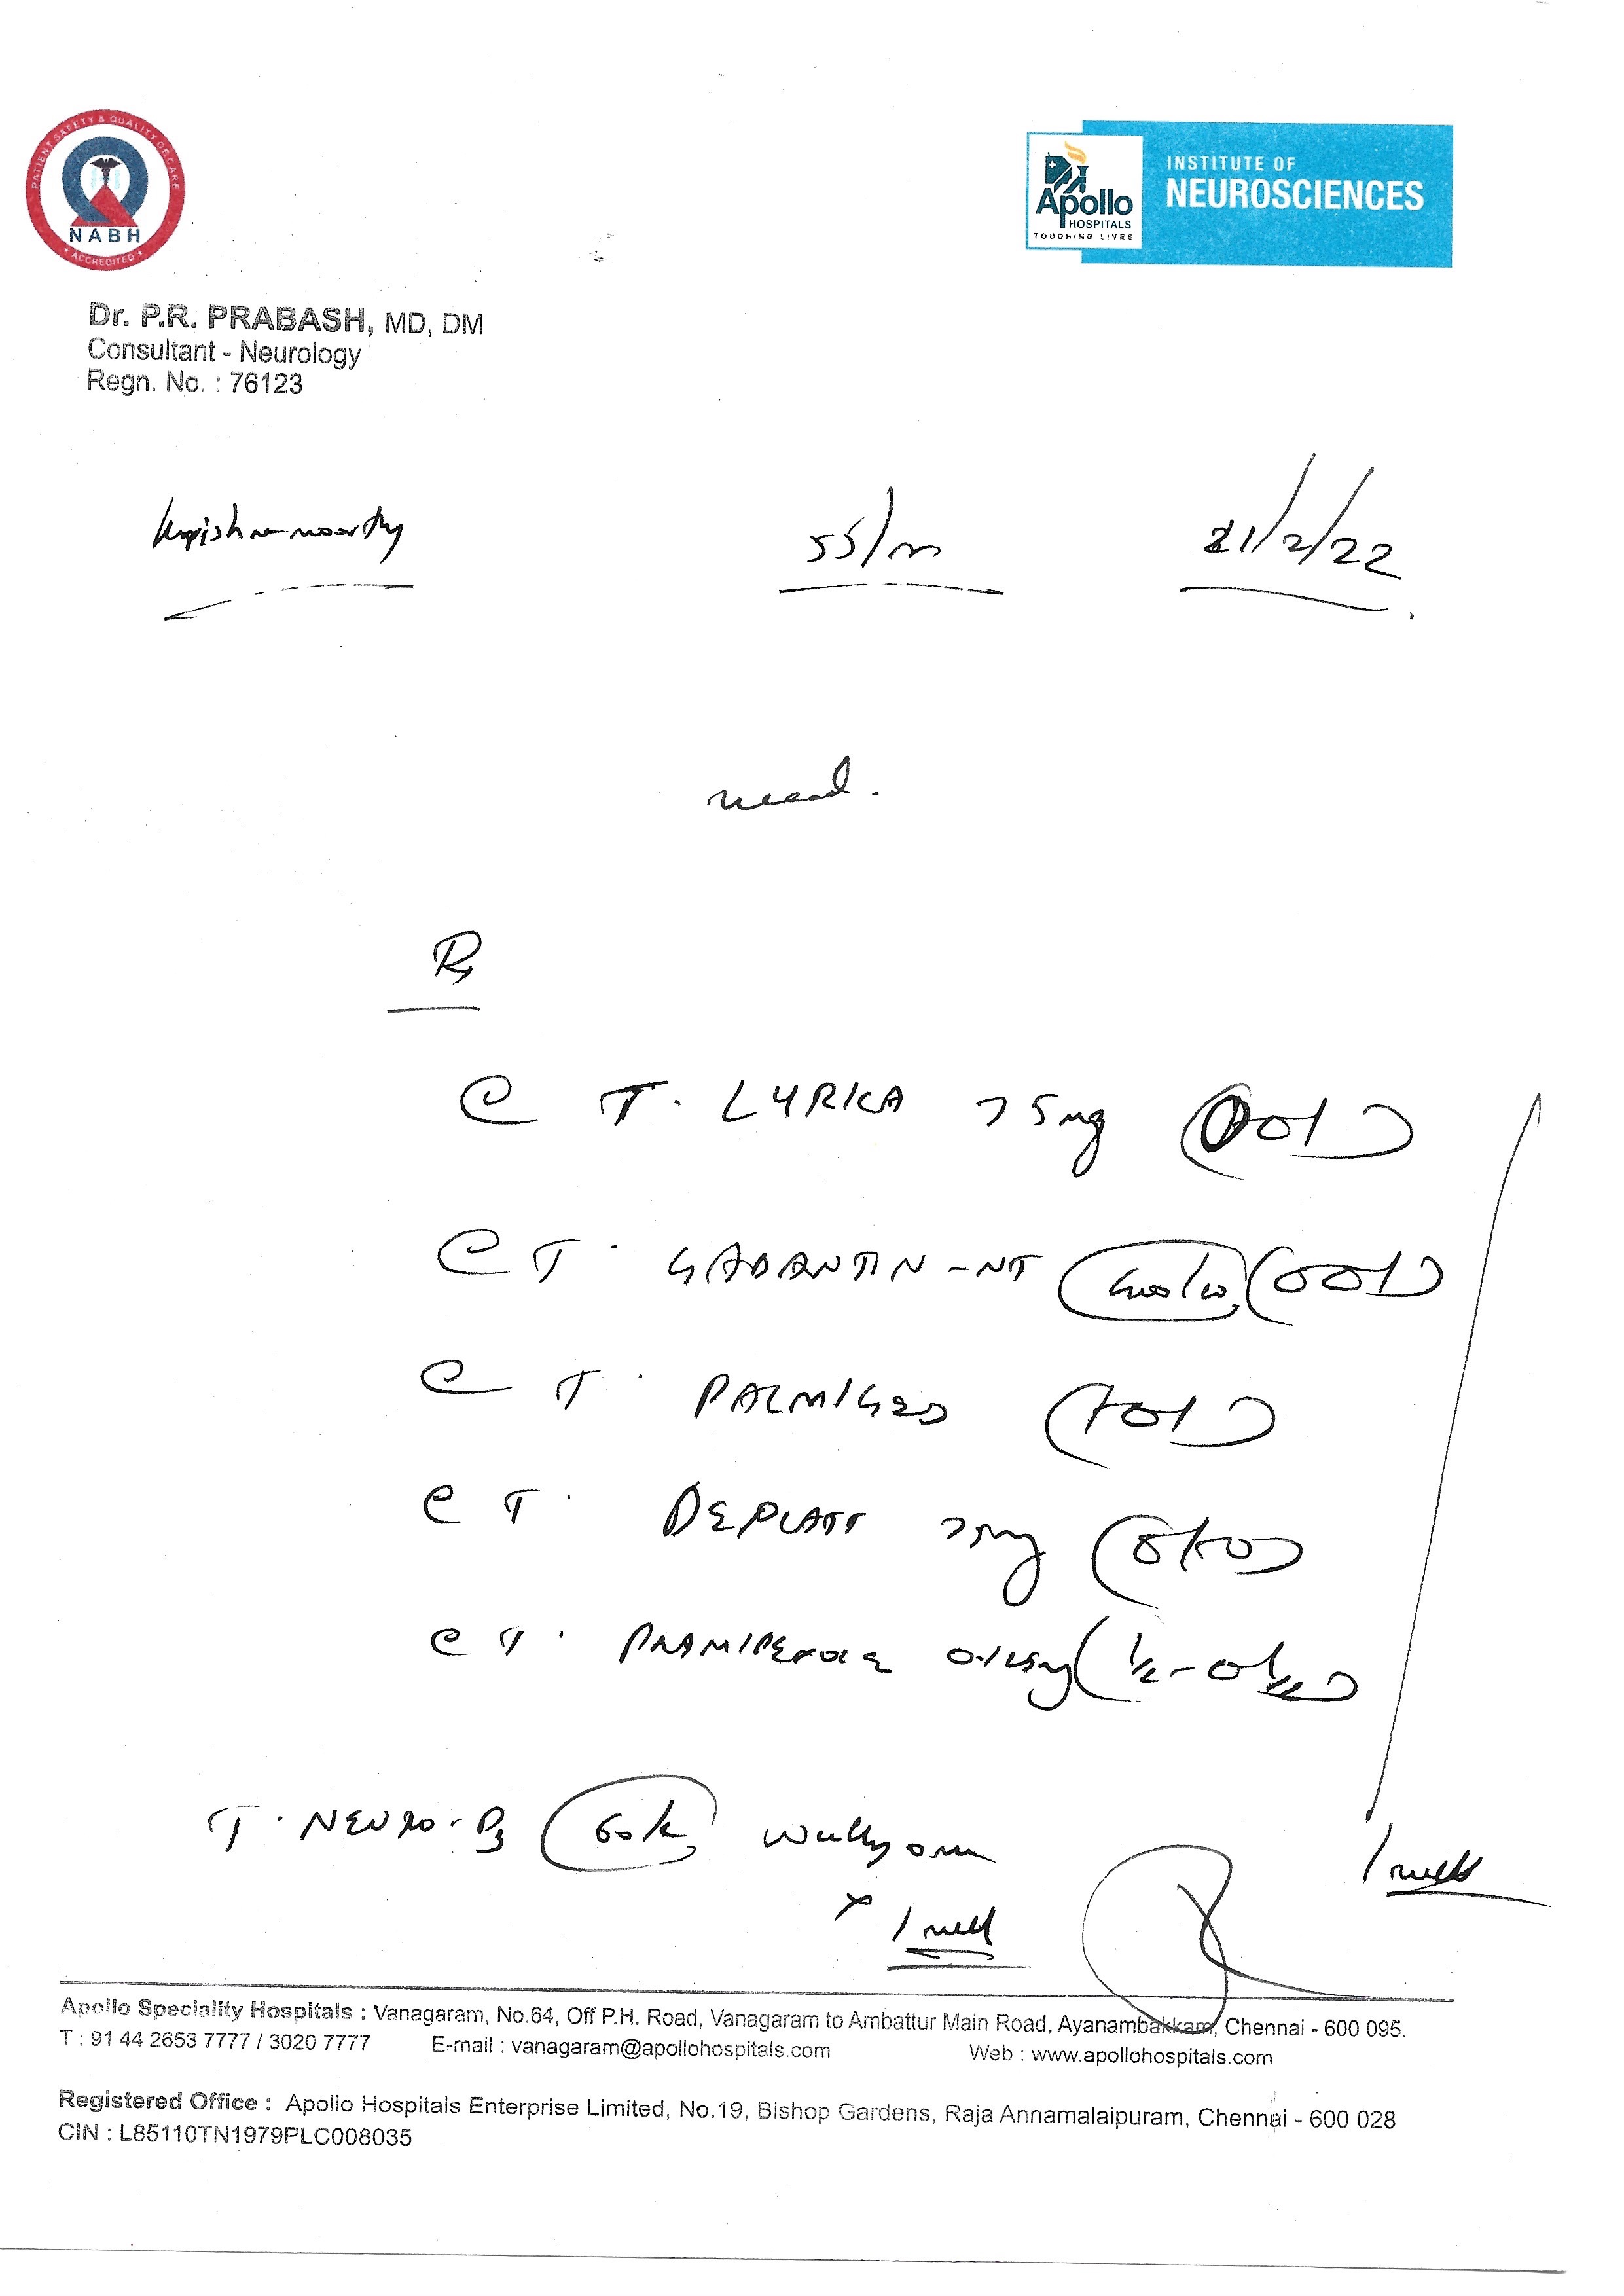 PATIENT SAFETY & QUALITY OF CARE
NABH
ACCREDITED
Apollo
HOSPITALS
TOUCHING LIVES
INSTITUTE OF
NEUROSCIENCES
Dr. P.R. PRABASH, MD, DM
Consultant - Neurology
Regn. No. : 76123
55/m 21/2/22
Rx
C T. LYRKA 75mg (001)
C T. GABANTIN-NT (001)
C T. (101)
C T. DEPLATT 75mg
C T. 0.125mg (½-0-½)
T. NEURO-D3 60k weekly one
x 1
1
Apollo Speciality Hospitals : Vanagaram, No.64, Off P.H. Road, Vanagaram to Ambattur Main Road, Ayanambakkam, Chennai - 600 095.
T : 91 44 2653 7777 / 3020 7777 E-mail : vanagaram@apollohospitals.com Web : www.apollohospitals.com
Registered Office : Apollo Hospitals Enterprise Limited, No.19, Bishop Gardens, Raja Annamalaipuram, Chennai - 600 028
CIN : L85110TN1979PLC008035